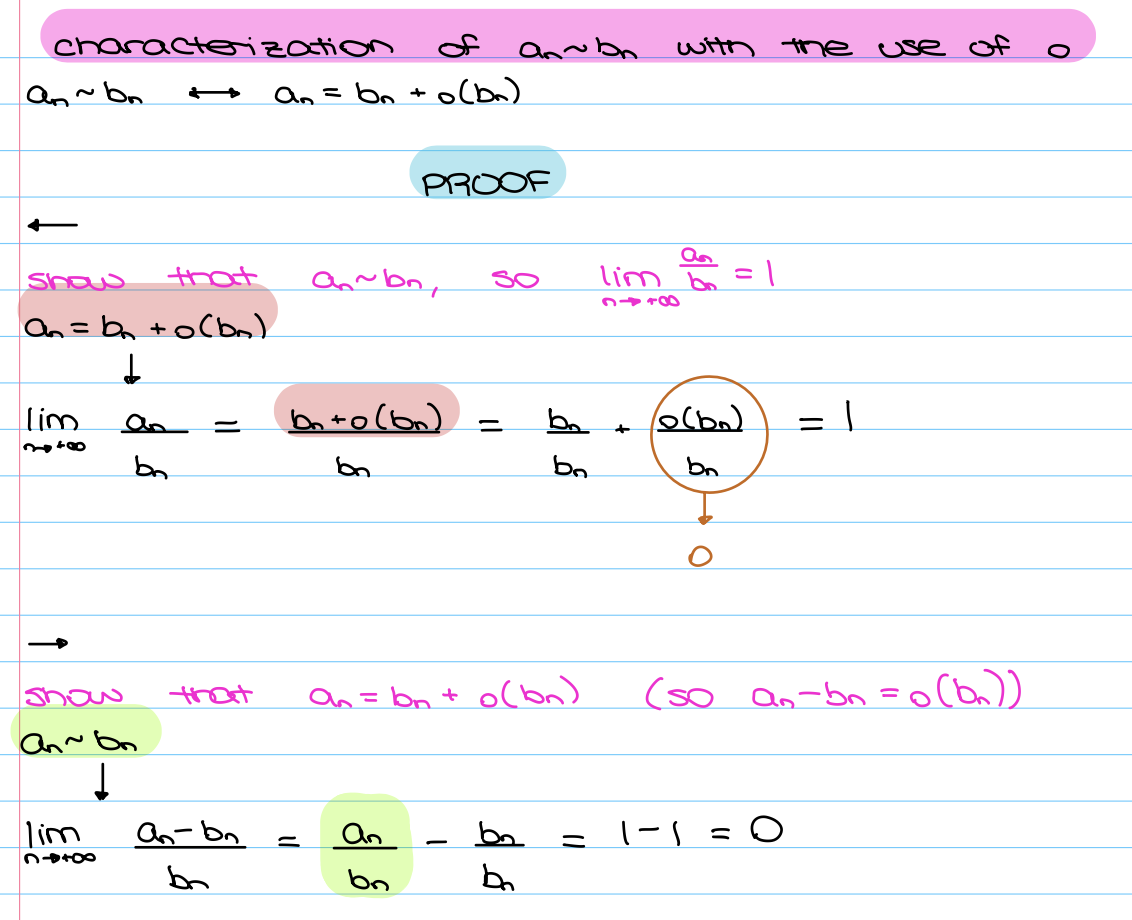 characterization of aₙ~bₙ with the use of o
aₙ ~ bₙ ⟷ aₙ = bₙ + o(bₙ)
PROOF
←
show that aₙ~bₙ, so lim n→+∞ aₙ/bₙ = 1
aₙ = bₙ + o(bₙ)
↓
lim n→+∞ aₙ/bₙ = (bₙ+o(bₙ))/bₙ = bₙ/bₙ + o(bₙ)/bₙ = 1
↓
0
→
show that aₙ = bₙ + o(bₙ) (so aₙ-bₙ = o(bₙ))
aₙ~bₙ
↓
lim n→+∞ (aₙ-bₙ)/bₙ = aₙ/bₙ - bₙ/bₙ = 1-1 = 0